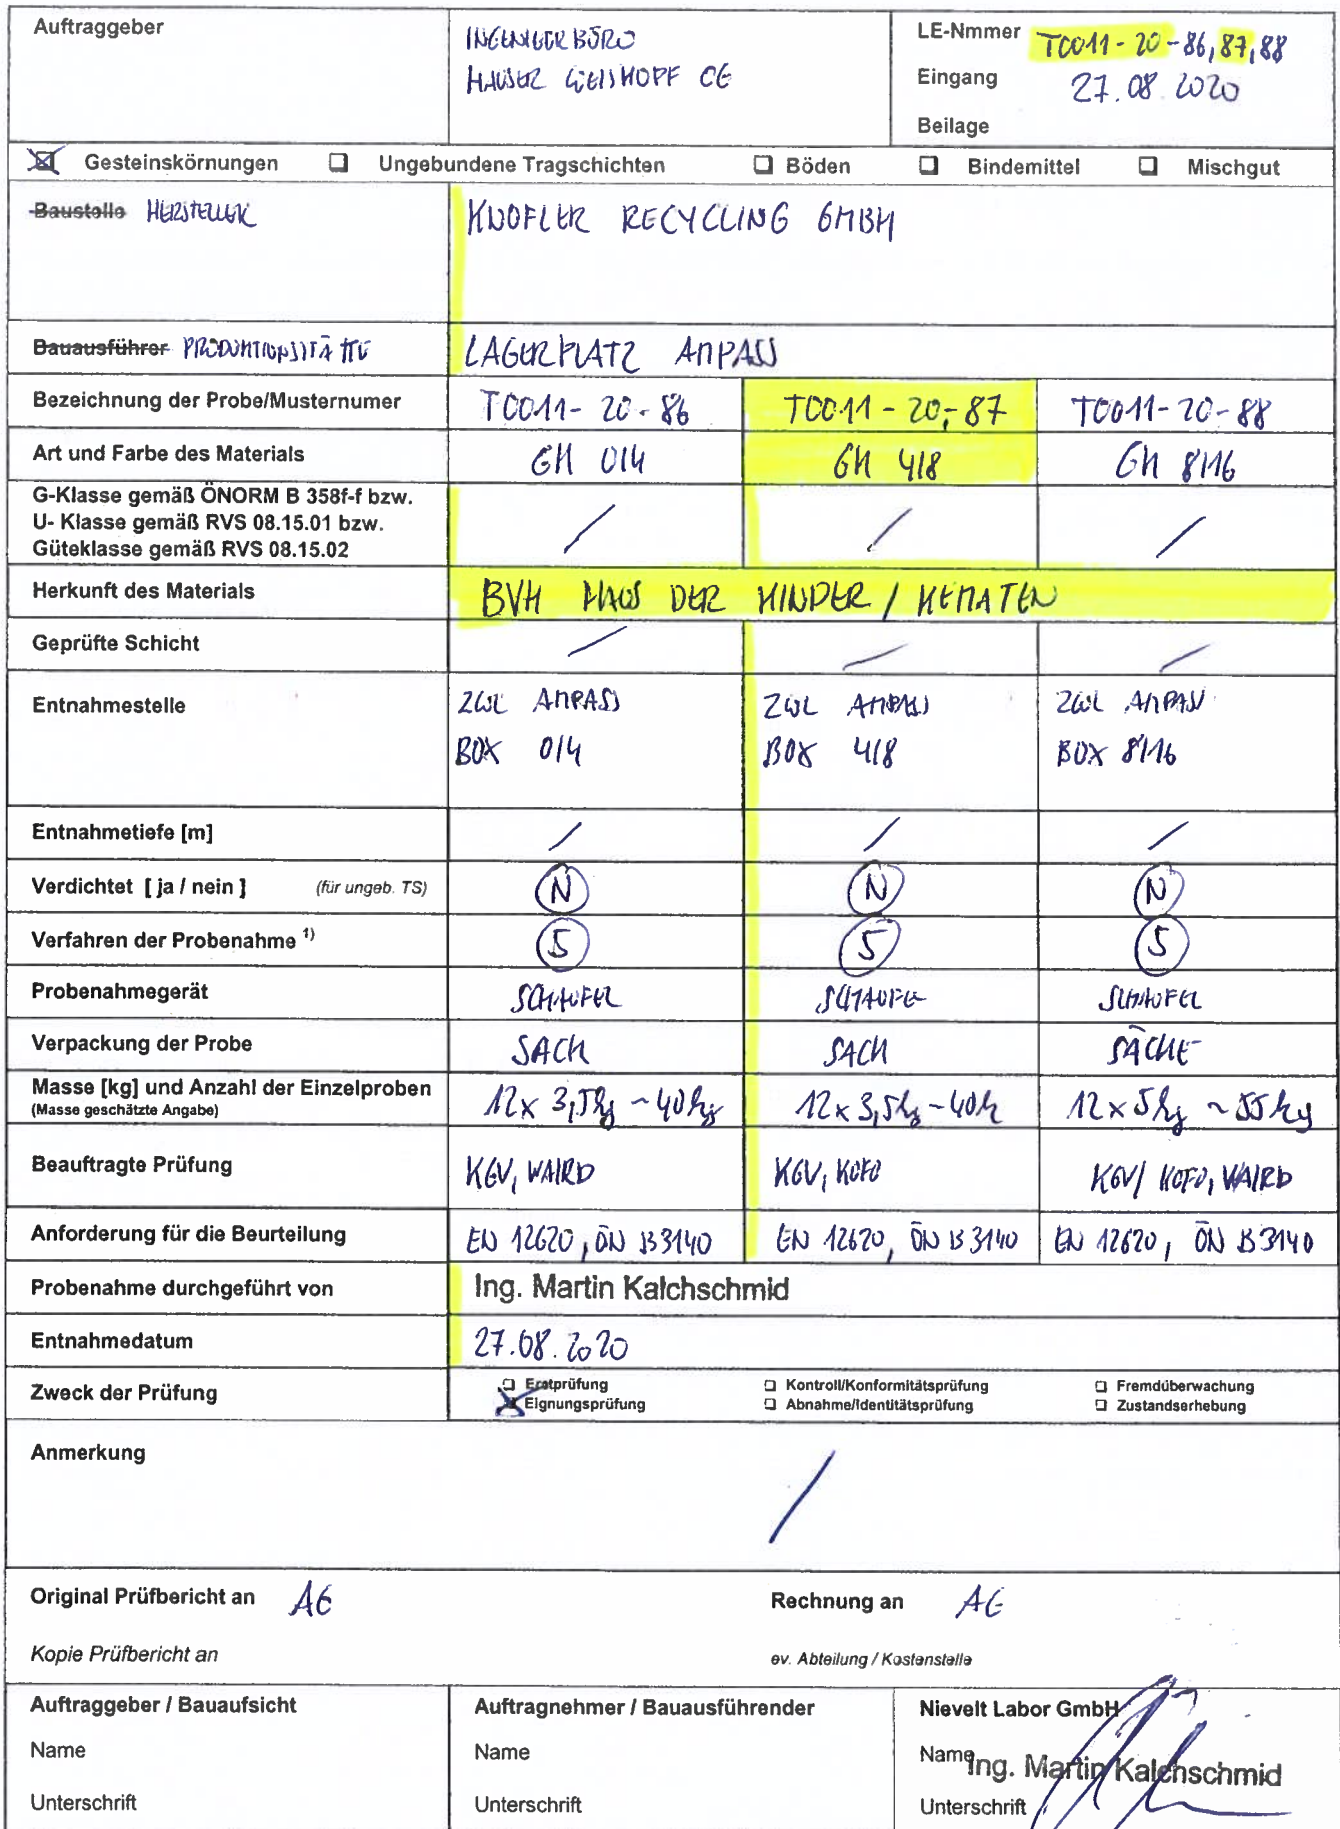 Auftraggeber
INGENIEURBÜRO
HAUSER GEISHOPF OG
LE-Nmmer TC011-20-86,87,88
Eingang 27.08.2020
Beilage
Gesteinskörnungen Ungebundene Tragschichten Böden Bindemittel Mischgut
Baustelle HERSTELLER KNOFLER RECYCLING GMBH
Bauausführer PRODUKTIONSSTÄTTE LAGERPLATZ AMPASS
Bezeichnung der Probe/Musternumer TC011-20-86 TC011-20-87 TC011-20-88
Art und Farbe des Materials GK 0/4 GK 4/8 GK 8/16
G-Klasse gemäß ÖNORM B 358f-f bzw.
U- Klasse gemäß RVS 08.15.01 bzw.
Güteklasse gemäß RVS 08.15.02
/ / /
Herkunft des Materials BVH HAUS DER KINDER / KEMATEN
Geprüfte Schicht / / /
Entnahmestelle ZWL AMPASS ZWL AMPASS ZWL AMPASS
BOX 0/4 BOX 4/8 BOX 8/16
Entnahmetiefe [m] / / /
Verdichtet [ ja / nein ] (für ungeb. TS) N N N
Verfahren der Probenahme 1) 5 5 5
Probenahmegerät SCHAUFEL SCHAUFEL SCHAUFEL
Verpackung der Probe SACK SACK SÄCKE
Masse [kg] und Anzahl der Einzelproben 12x 3,5kg ~40kg 12x3,5kg ~40k 12x5kg ~55kg
(Masse geschätzte Angabe)
Beauftragte Prüfung KGV, WAIRD KGV, KOFO KGV/ KOFO, WAIRD
Anforderung für die Beurteilung EN 12620, ÖN B3140 EN 12620, ÖN B3140 EN 12620, ÖN B3140
Probenahme durchgeführt von Ing. Martin Kalchschmid
Entnahmedatum 27.08.2020
Zweck der Prüfung
Erstprüfung Kontroll/Konformitätsprüfung Fremdüberwachung
Eignungsprüfung Abnahme/Identitätsprüfung Zustandserhebung
Anmerkung /
Original Prüfbericht an AG Rechnung an AG
Kopie Prüfbericht an ev. Abteilung / Kostenstelle
Auftraggeber / Bauaufsicht Auftragnehmer / Bauausführender Nievelt Labor GmbH
Name Name Name Ing. Martin Kalchschmid
Unterschrift Unterschrift Unterschrift